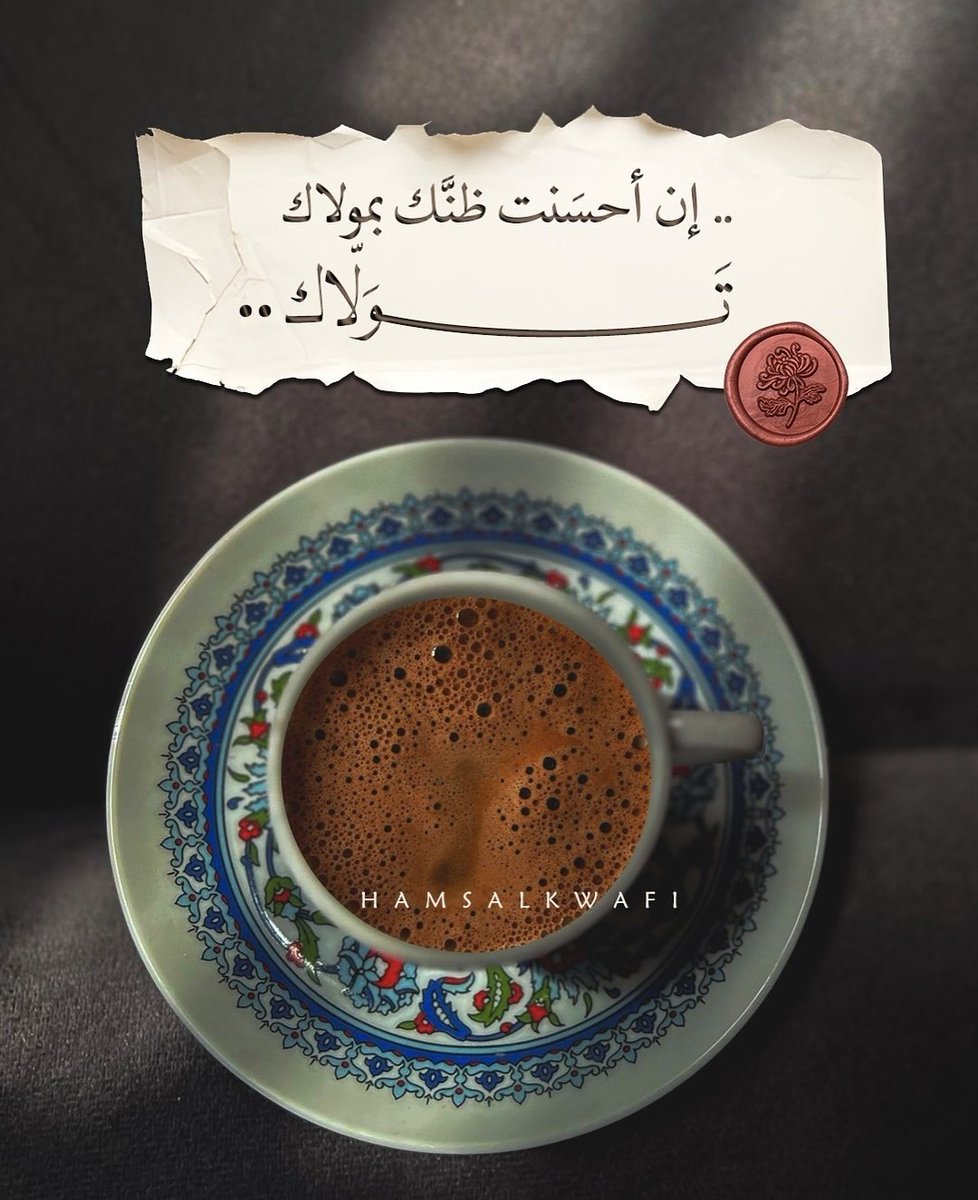 .. إن أحسَنت ظنَّك بمولاك
تَـــــــــولّاك ..
HAMSALKWAFI